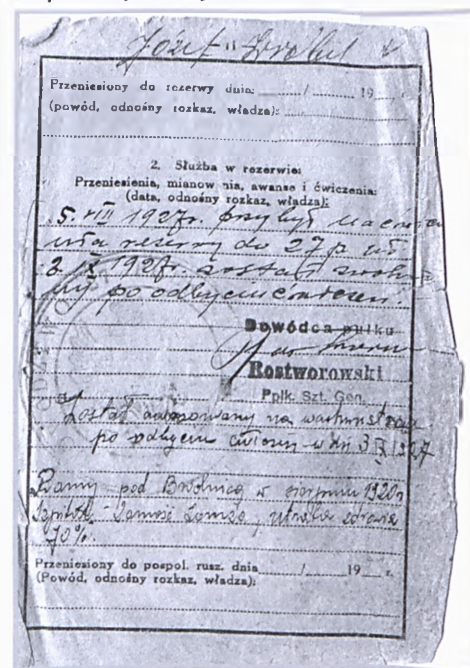 Józef Wróbel
Przeniesiony do rezerwy dnia: / 19 r.
(powód, odnośny rozkaz, władza):
2. Służba w rezerwie:
Przeniesienia, mianow nia, awanse i ćwiczenia:
(data, odnośny rozkaz, władza):
5. VIII 1927r. przybył na ćwicze
nia rezerwy do 27 p. uł
3. IX 1927r. został zwolnio
ny po odbyciu ćwiczen.
Dowódca pułku
Rostworowski
Pplk. Szt. Gen.
Został awansowany na wachmistrza
po odbyciu ćwiczen w dn 3 IX 1927
Ranny pod Brodnicą w sierpniu 1920r
Szpital Zamość Łomża, utrata zdrowia
70%.
Przeniesiony do pospol. rusz. dnia / 19 r.
(Powód, odnośny rozkaz, władza):